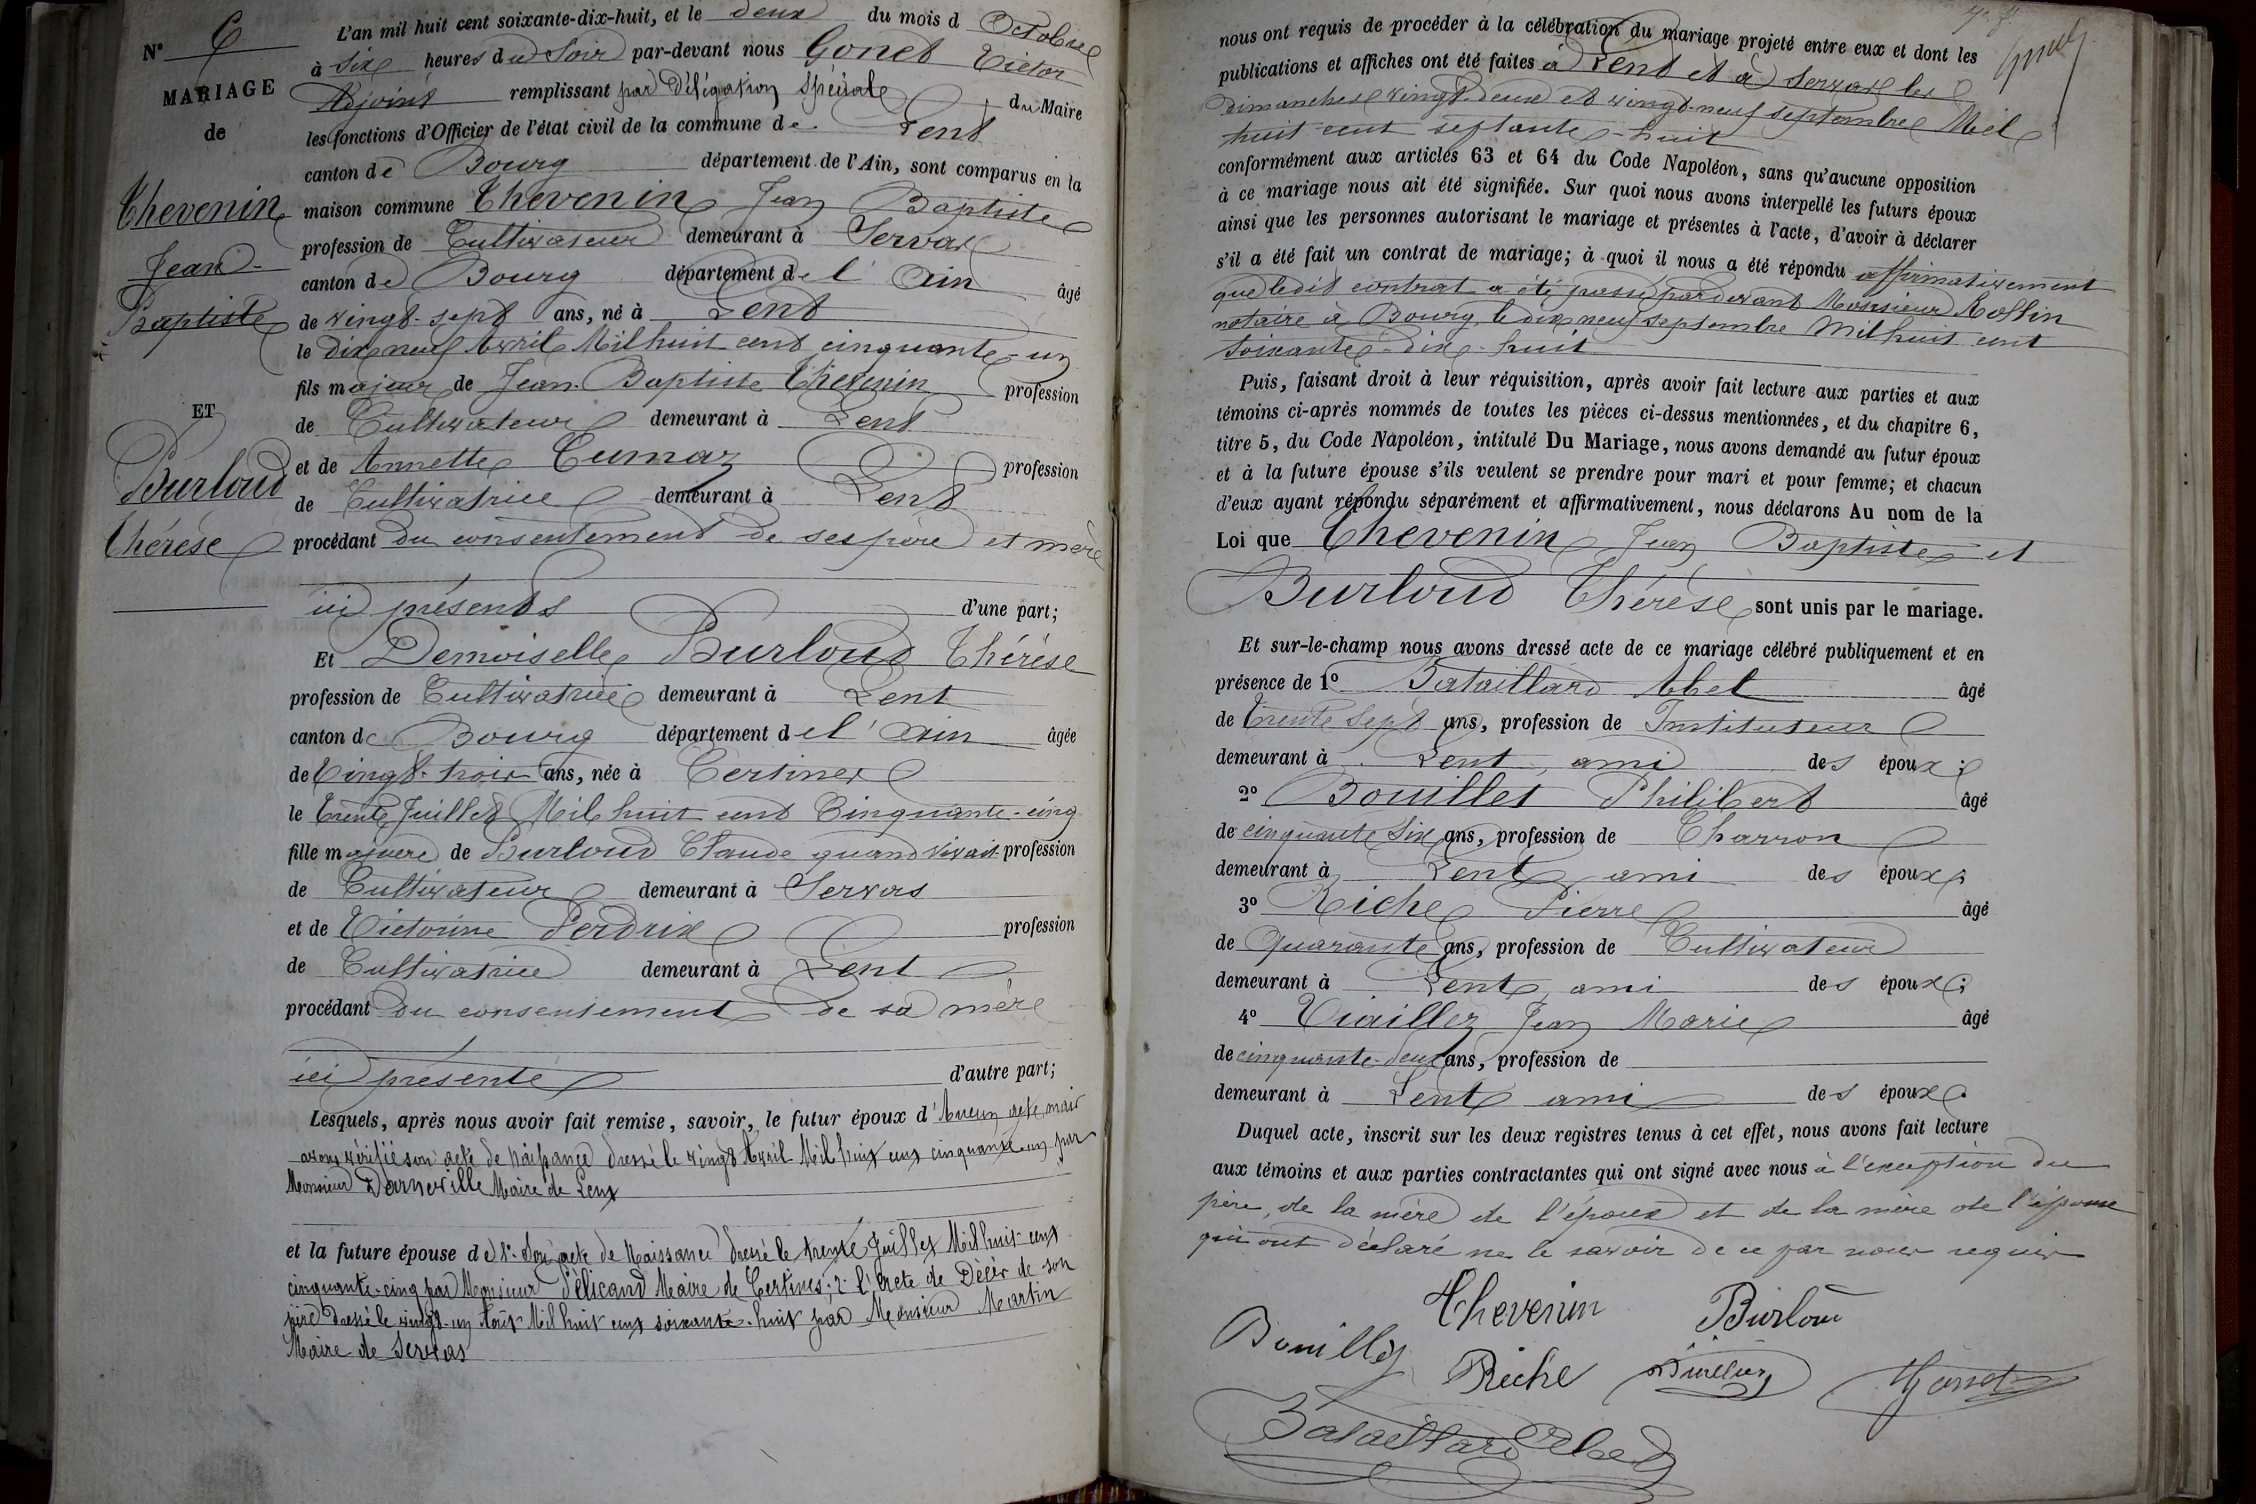 N° 6
MARIAGE
de
Thevenin
Jean-
Baptiste
ET
Burloud
Thérèse
L'an mil huit cent soixante-dix-huit, et le deux du mois d Octobre
à six heures du Soir par-devant nous Gonet Victor
Adjoint remplissant par Délégation Spéciale du Maire
les fonctions d'Officier de l'état civil de la commune de Lent
canton de Bourg département de l'Ain, sont comparus en la
maison commune Thevenin Jean Baptiste
profession de Cultivateur demeurant à Servas
canton de Bourg département de l' Ain âgé
de vingt-sept ans, né à Lent
le dix neuf Avril Mil huit cent cinquante-un
fils majeur de Jean-Baptiste Thevenin profession
de Cultivateur demeurant à Lent
et de Annette Cumaz profession
de Cultivatrice demeurant à Lent
procédant du consentement de ses père et mère
ici présents d'une part;
Et Demoiselle Burloud Thérèse
profession de Cultivatrice demeurant à Lent
canton de Bourg département de l' Ain âgée
de Vingt-trois ans, née à Certines
le trente Juillet Mil huit cent Cinquante-cinq
fille majeure de Burloud Claude quand vivait profession
de Cultivateur demeurant à Servas
et de Victorine Perdrix profession
de Cultivatrice demeurant à Lent
procédant du consentement de sa mère
ici présente d'autre part;
Lesquels, après nous avoir fait remise, savoir, le futur époux d'Aucun acte, mais
avons vérifié son acte de naissance dressé le vingt Avril Mil huit cent cinquante-un par
Monsieur Darneville Maire de Lent
et la future épouse de 1° Son acte de Naissance dressé le trente Juillet Mil huit cent
cinquante-cinq par Monsieur Pélicand Maire de Certines; 2° l'Acte de Décès de son
père dressé le vingt-un Août Mil huit cent soixante-huit par Monsieur Martin
Maire de Servas
nous ont requis de procéder à la célébration du mariage projeté entre eux et dont les
publications et affiches ont été faites à Lent et à Servas les
dimanches vingt-deux et vingt-neuf septembre Mil
huit cent septante-huit
conformément aux articles 63 et 64 du Code Napoléon, sans qu'aucune opposition
à ce mariage nous ait été signifiée. Sur quoi nous avons interpellé les futurs époux
ainsi que les personnes autorisant le mariage et présentes à l'acte, d'avoir à déclarer
s'il a été fait un contrat de mariage; à quoi il nous a été répondu affirmativement
que ledit contrat a été passé pardevant Monsieur Rollin
notaire à Bourg le dix neuf septembre Mil huit cent
soixante-dix-huit
Puis, faisant droit à leur réquisition, après avoir fait lecture aux parties et aux
témoins ci-après nommés de toutes les pièces ci-dessus mentionnées, et du chapitre 6,
titre 5, du Code Napoléon, intitulé Du Mariage, nous avons demandé au futur époux
et à la future épouse s'ils veulent se prendre pour mari et pour femme; et chacun
d'eux ayant répondu séparément et affirmativement, nous déclarons Au nom de la
Loi que Thevenin Jean Baptiste et
Burloud Thérèse sont unis par le mariage.
Et sur-le-champ nous avons dressé acte de ce mariage célébré publiquement et en
présence de 1° Bataillard Abel âgé
de trente sept ans, profession de Instituteur
demeurant à Lent, ami des époux;
2° Bouillet Philibert âgé
de cinquante Six ans, profession de Charron
demeurant à Lent ami des époux;
3° Riche Pierre âgé
de quarante ans, profession de Cultivateur
demeurant à Lent, ami des époux;
4° Viailler Jean Marie âgé
de cinquante-deux ans, profession de
demeurant à Lent ami des époux.
Duquel acte, inscrit sur les deux registres tenus à cet effet, nous avons fait lecture
aux témoins et aux parties contractantes qui ont signé avec nous à l'exception du
père, de la mère de l'époux et de la mère de l'épouse
qui ont déclaré ne le savoir de ce par nous requis
Thevenin Burloud
Bouillet Riche Gonet
Bataillard Abel